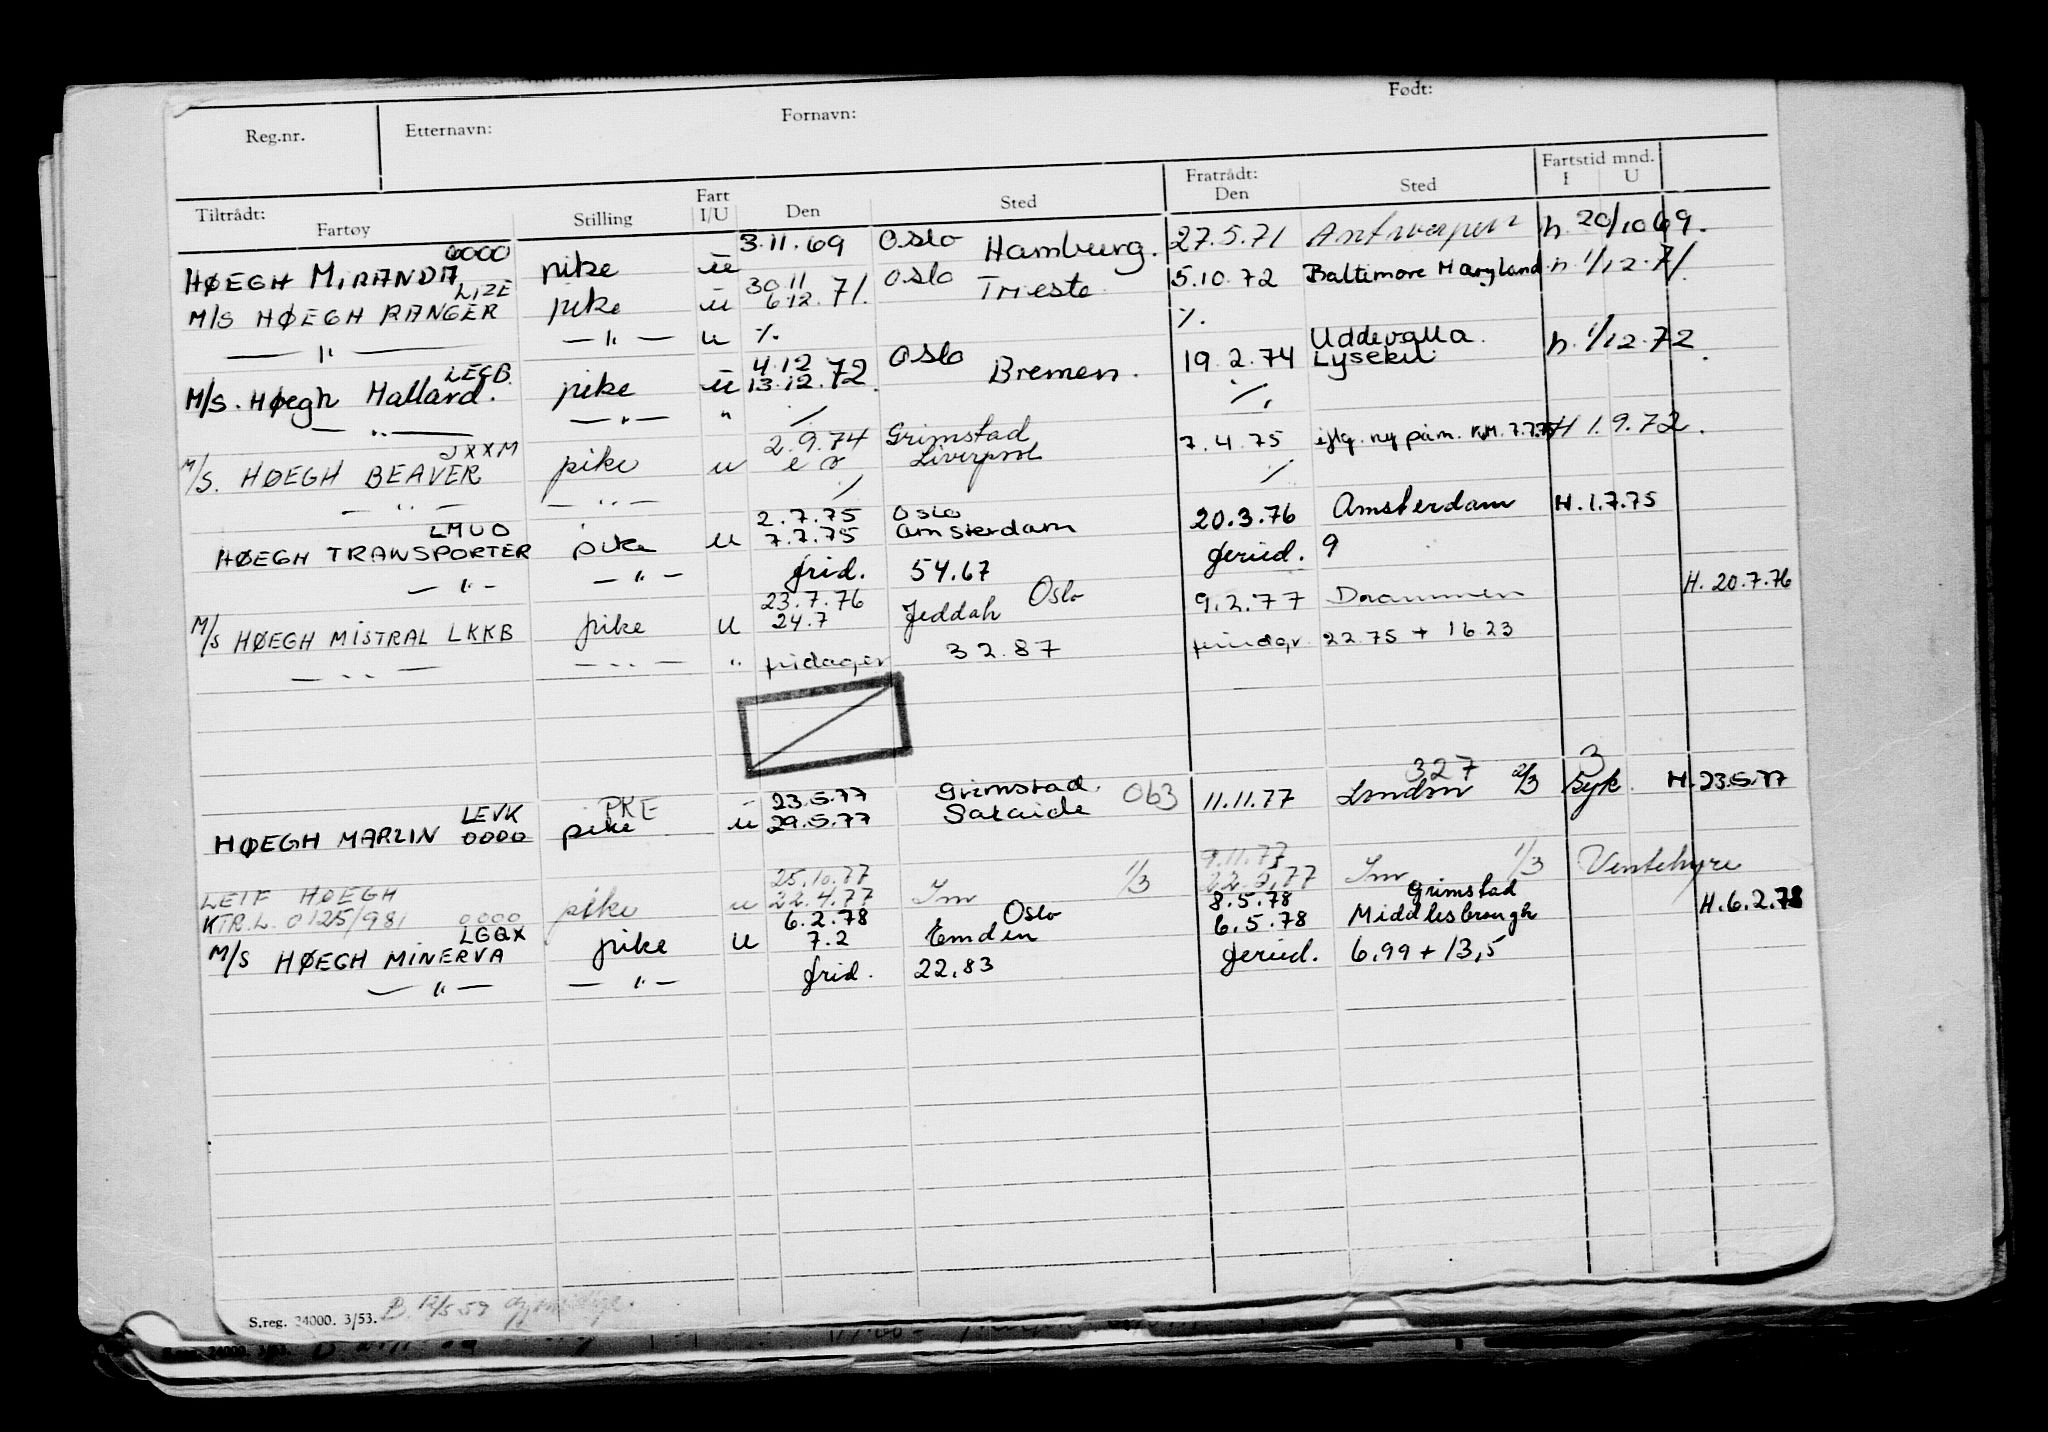 Reg.nr. Etternavn: Fornavn: Født:
Tiltrådt: Fartøy Stilling Fart I/U Den Sted Fratrådt: Den Sted Fartstid mnd. I U
0000 3.11.69 Oslo
HØEGH MIRANDA pike u Hamburg. 27.5.71 Antwerpen h. 20/10 69.
LIZE 30 11 Oslo
M/S HØEGH RANGER pike u 6.12.71. Trieste 5.10.72 Baltimore Maryland. h 1/12.71.
— " — — " — u %. %.
LEGB. 4.12 Oslo Uddevalla.
M/S. Høegh Mallard. pike u 13.12.72. Bremen. 19.2.74 Lysekil h. 1/12.72.
— " — — " — " / %.
JXXM 2.9.74 Grimstad
M/S. HØEGH BEAVER pike u Liverpool 7.4.75 iflg. ny påm. 7.7.75 H 1.9.72.
— " — — " — / /
LMUO 2.7.75 Oslo
HØEGH TRANSPORTER pike u 7.7.75 Amsterdam 20.3.76 Amsterdam H.1.7.75
— " — — " — frid. 54.67 feried. 9
23.7.76 Oslo
M/S HØEGH MISTRAL LKKB pike u 24.7 Jeddah 9.2.77 Drammen H. 20.7.76
— " — — " — " fridager 32.87 22.75 + 16 23
LEVK PKE 23.5.77 Grimstad. 327 3
HØEGH MARLIN 0000 pike u 29.5.77 063 11.11.77 London 2/3 Syk. H. 23.5.77
25.10.77 1/3 9.11.77 1/3 Ventehyre
LEIF HØEGH
KTR.L. 0125/981 0000 pike u 22.4.77
LGQX 6.2.78 Oslo 8.5.78 Grimstad
M/S HØEGH MINERVA pike u 7.2 Emden 6.5.78 Middlesbrough H.6.2.78
— " — — " — frid. 22.83 feried. 6,99 + 13,5
S.reg. 24000. 3/53.